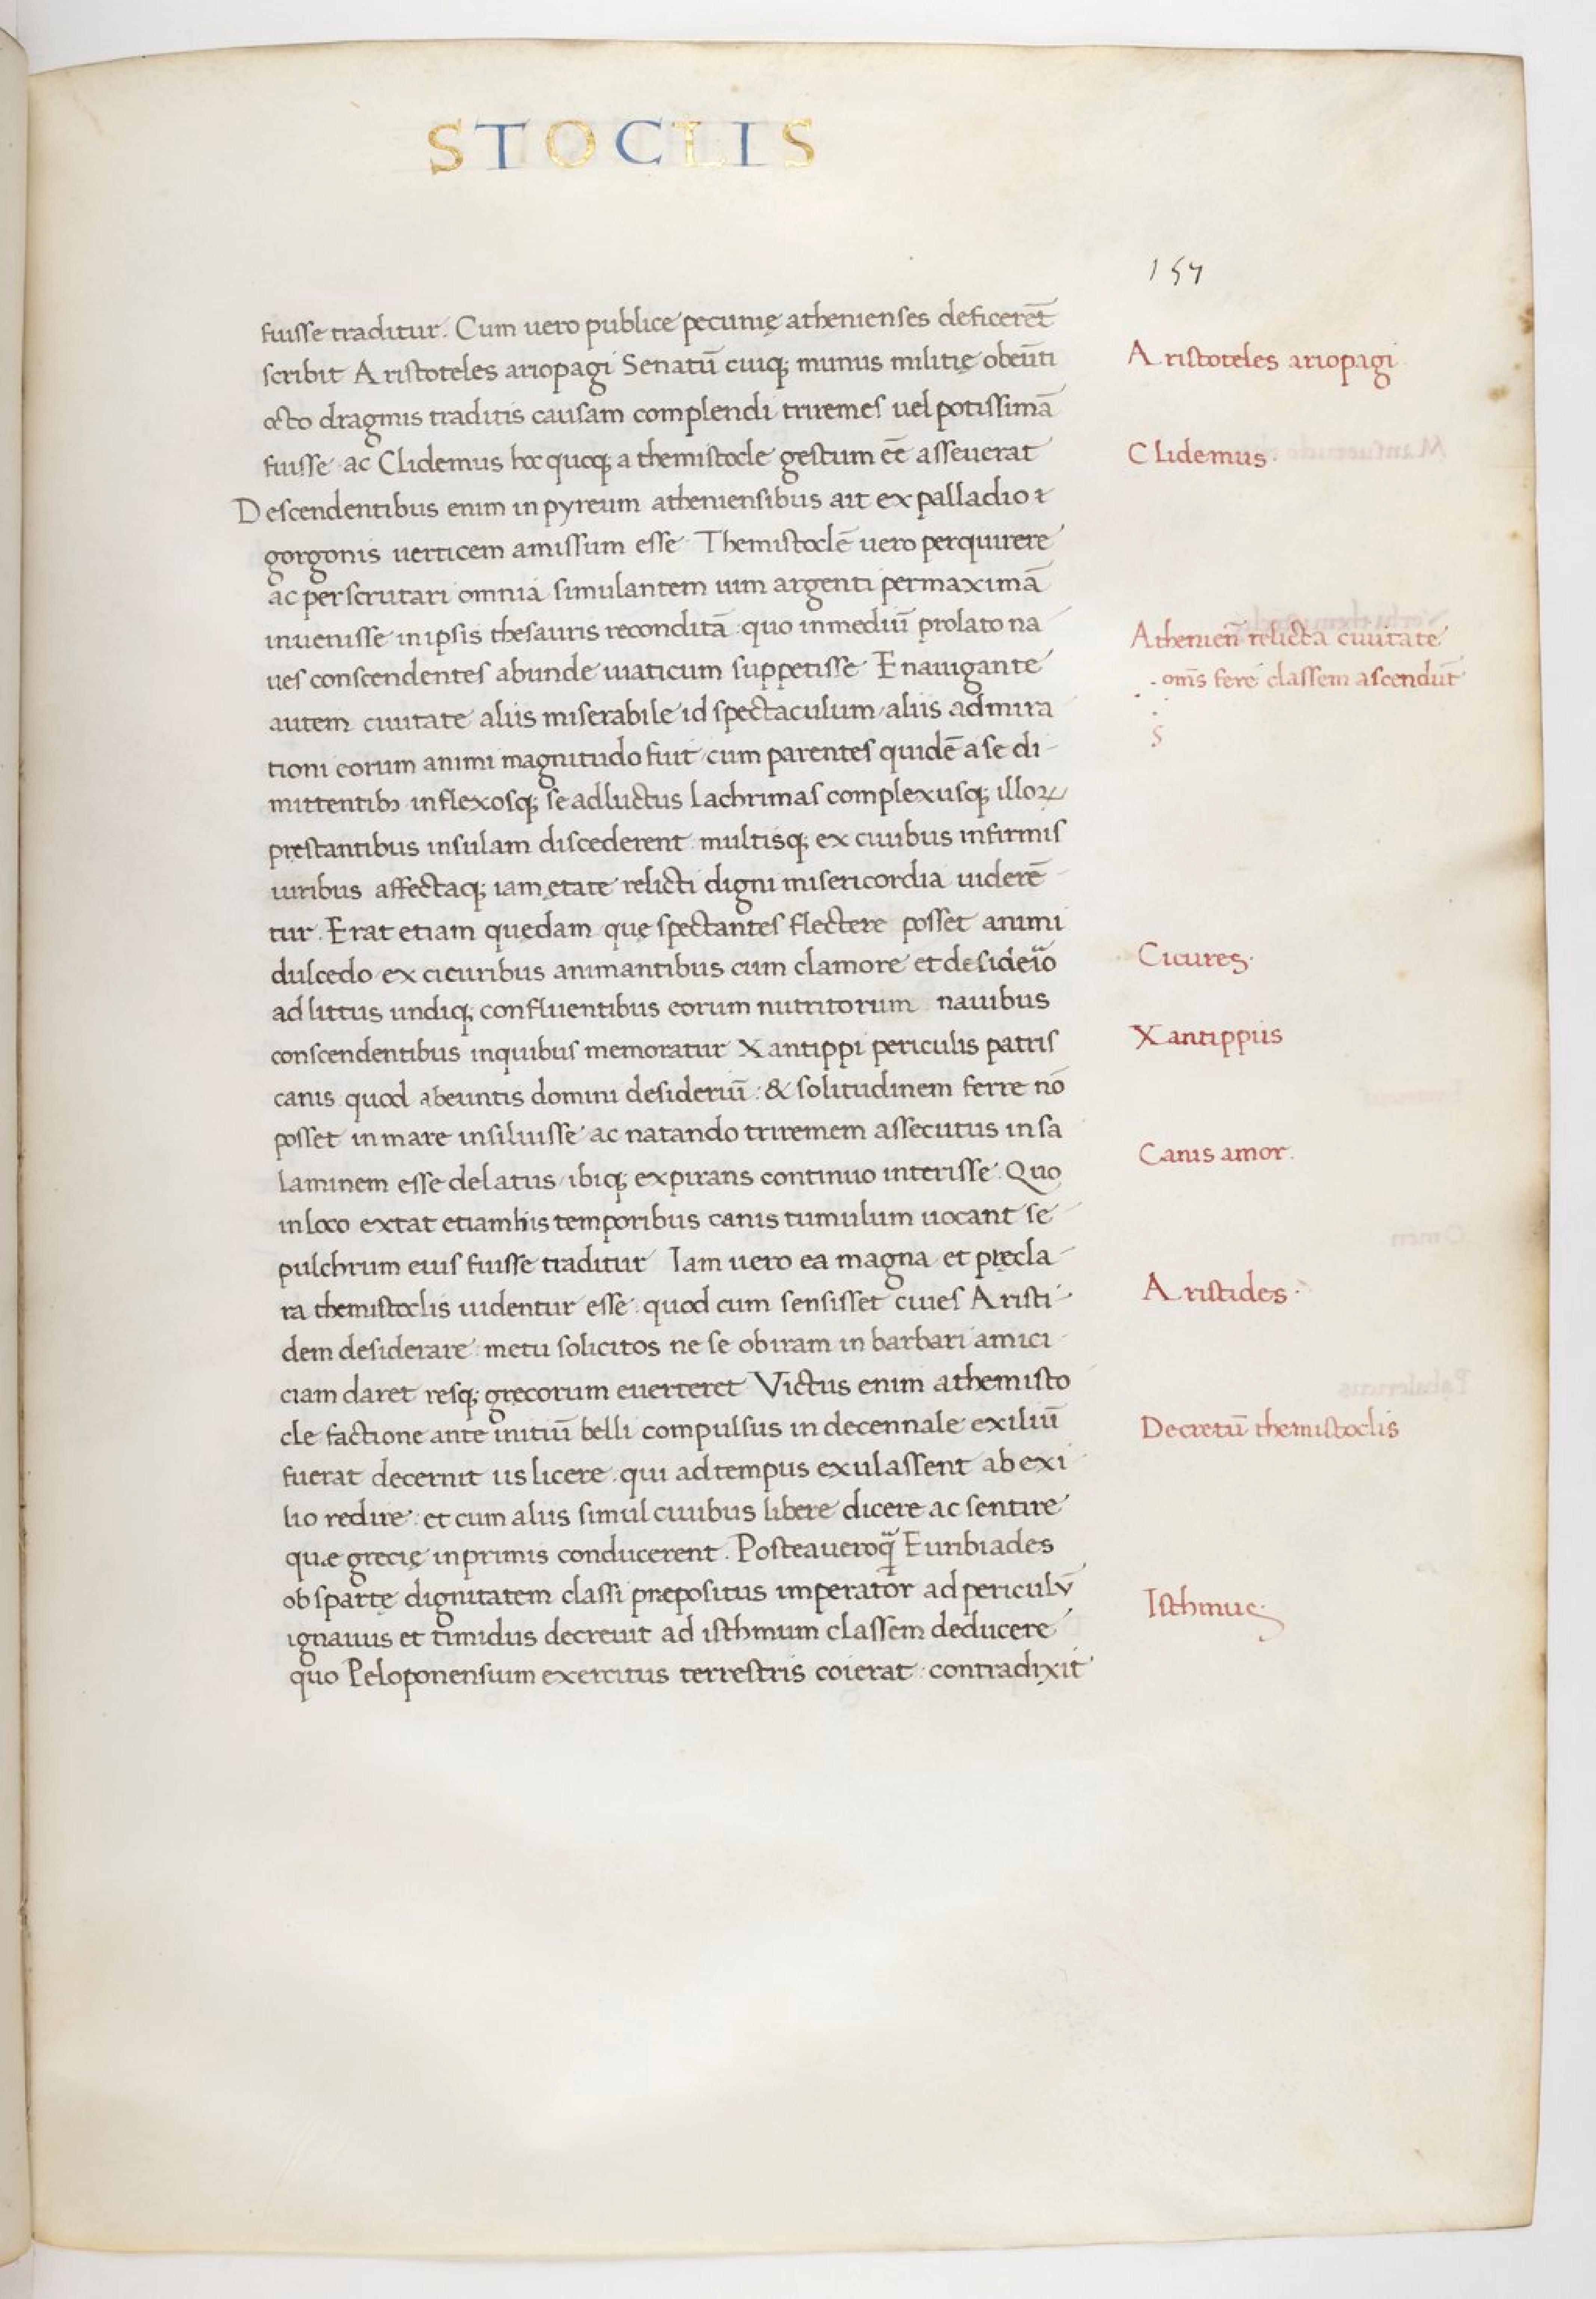 STOCLIS
157
fuisse traditur. Cum uero publice pecunię athenienses deficerēt
scribit Aristoteles ariopagi Senatū cuiq; munus militię obeūti
octo dragmis traditis causam complendi triremes uel potissimā
fuisse ac Clidemus hoc quoq; a themistocle gestum eē asseuerat
Descendentibus enim in pyreum atheniensibus ait ex palladio ⁊
gorgonis uerticem amissum esse Themistoclē uero perquirere
ac perscrutari omnia simulantem uim argenti permaximā
inuenisse in ipsis thesauris reconditā quo inmediū prolato na
ues conscendentes abunde uiaticum suppetisse Enauigante
autem ciuitate aliis miserabile id spectaculum aliis admira
tioni eorum animi magnitudo fuit cum parentes quidē a se di-
mittentibꝫ inflexosq; se adluctus lachrimas complexusq; illoꝝ
prestantibus insulam discederent multisq; ex ciuibus infirmis
uiribus affectaq; iam ętate relicti digni misericordia uiderē-
tur. Erat etiam quędam quę spectantes flectere posset animi
dulcedo ex cicuribus animantibus cum clamore et desideıo
ad littus undiq; confluentibus eorum nutritorum nauibus
conscendentibus inquibus memoratur Xantippi periculis patris
canis quod abeuntis domini desideriū: & solitudinem ferre nō
posset in mare insiluisse ac natando triremem assecutus in sa
laminem esse delatus / ibiq; expirans continuo interisse. Quo
in loco extat etiam his temporibus canis tumulum uocant se-
pulchrum eius fuisse traditur Iam uero ea magna et pręcla-
ra themistoclis uidentur esse quod cum sensisset ciues Aristi-
dem desiderare metu solicitos ne se ob iram in barbari amici-
ciam daret resq; gręcorum euerteret Victus enim a themisto
cle factione ante initiū belli compulsus in decennale exiliū
fuerat decernit iis licere qui ad tempus exulassent ab exi-
lio redire: et cum aliis simul ciuibus libere dicere ac sentire
quæ grecię inprimis conducerent. Posteaueroq̄ Euribiades
ob spartę dignitatem classi præpositus imperator ad periculū
ignauus et timidus decreuit ad isthmum classem deducere
quo Peloponensium exercitus terrestris coierat: contradixit
Aristoteles ariopagi
Clidemus.
Athenien̄ relicta ciuitate
om̄s fere classem ascendūt
Cicures.
Xantippus
Canis amor.
Aristides.
Decretū themistoclis
Isthmus.